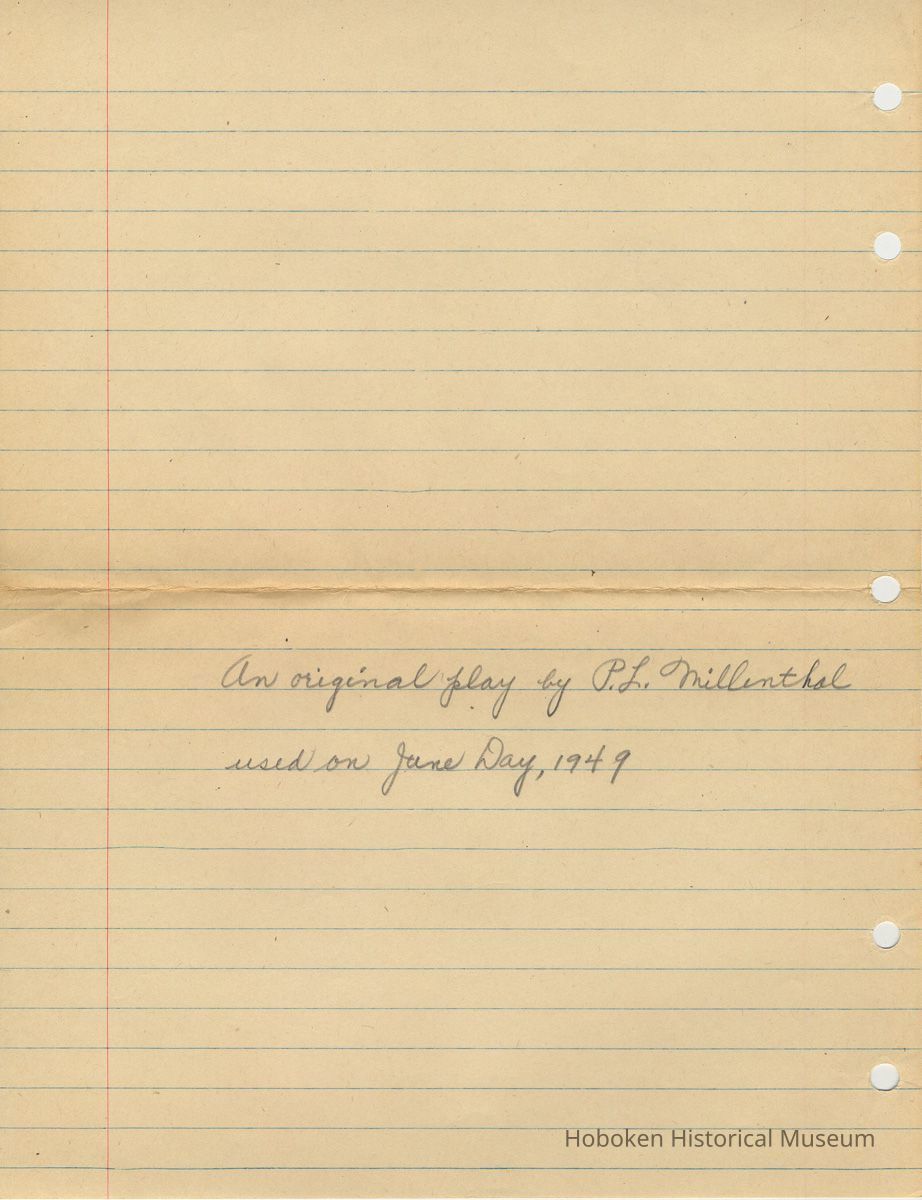 An original play by P.L. Millenthal
used on June Day, 1949
Hoboken Historical Museum